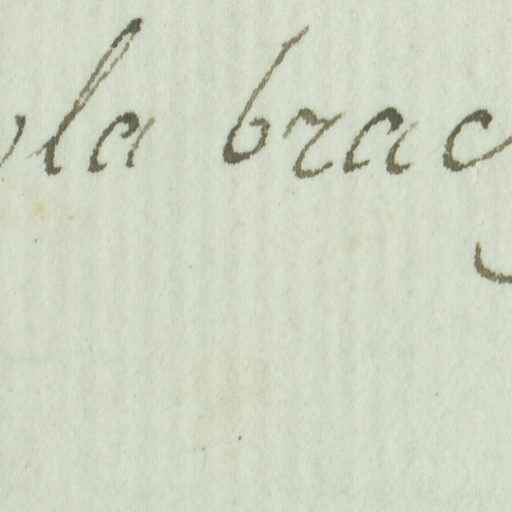 la brac